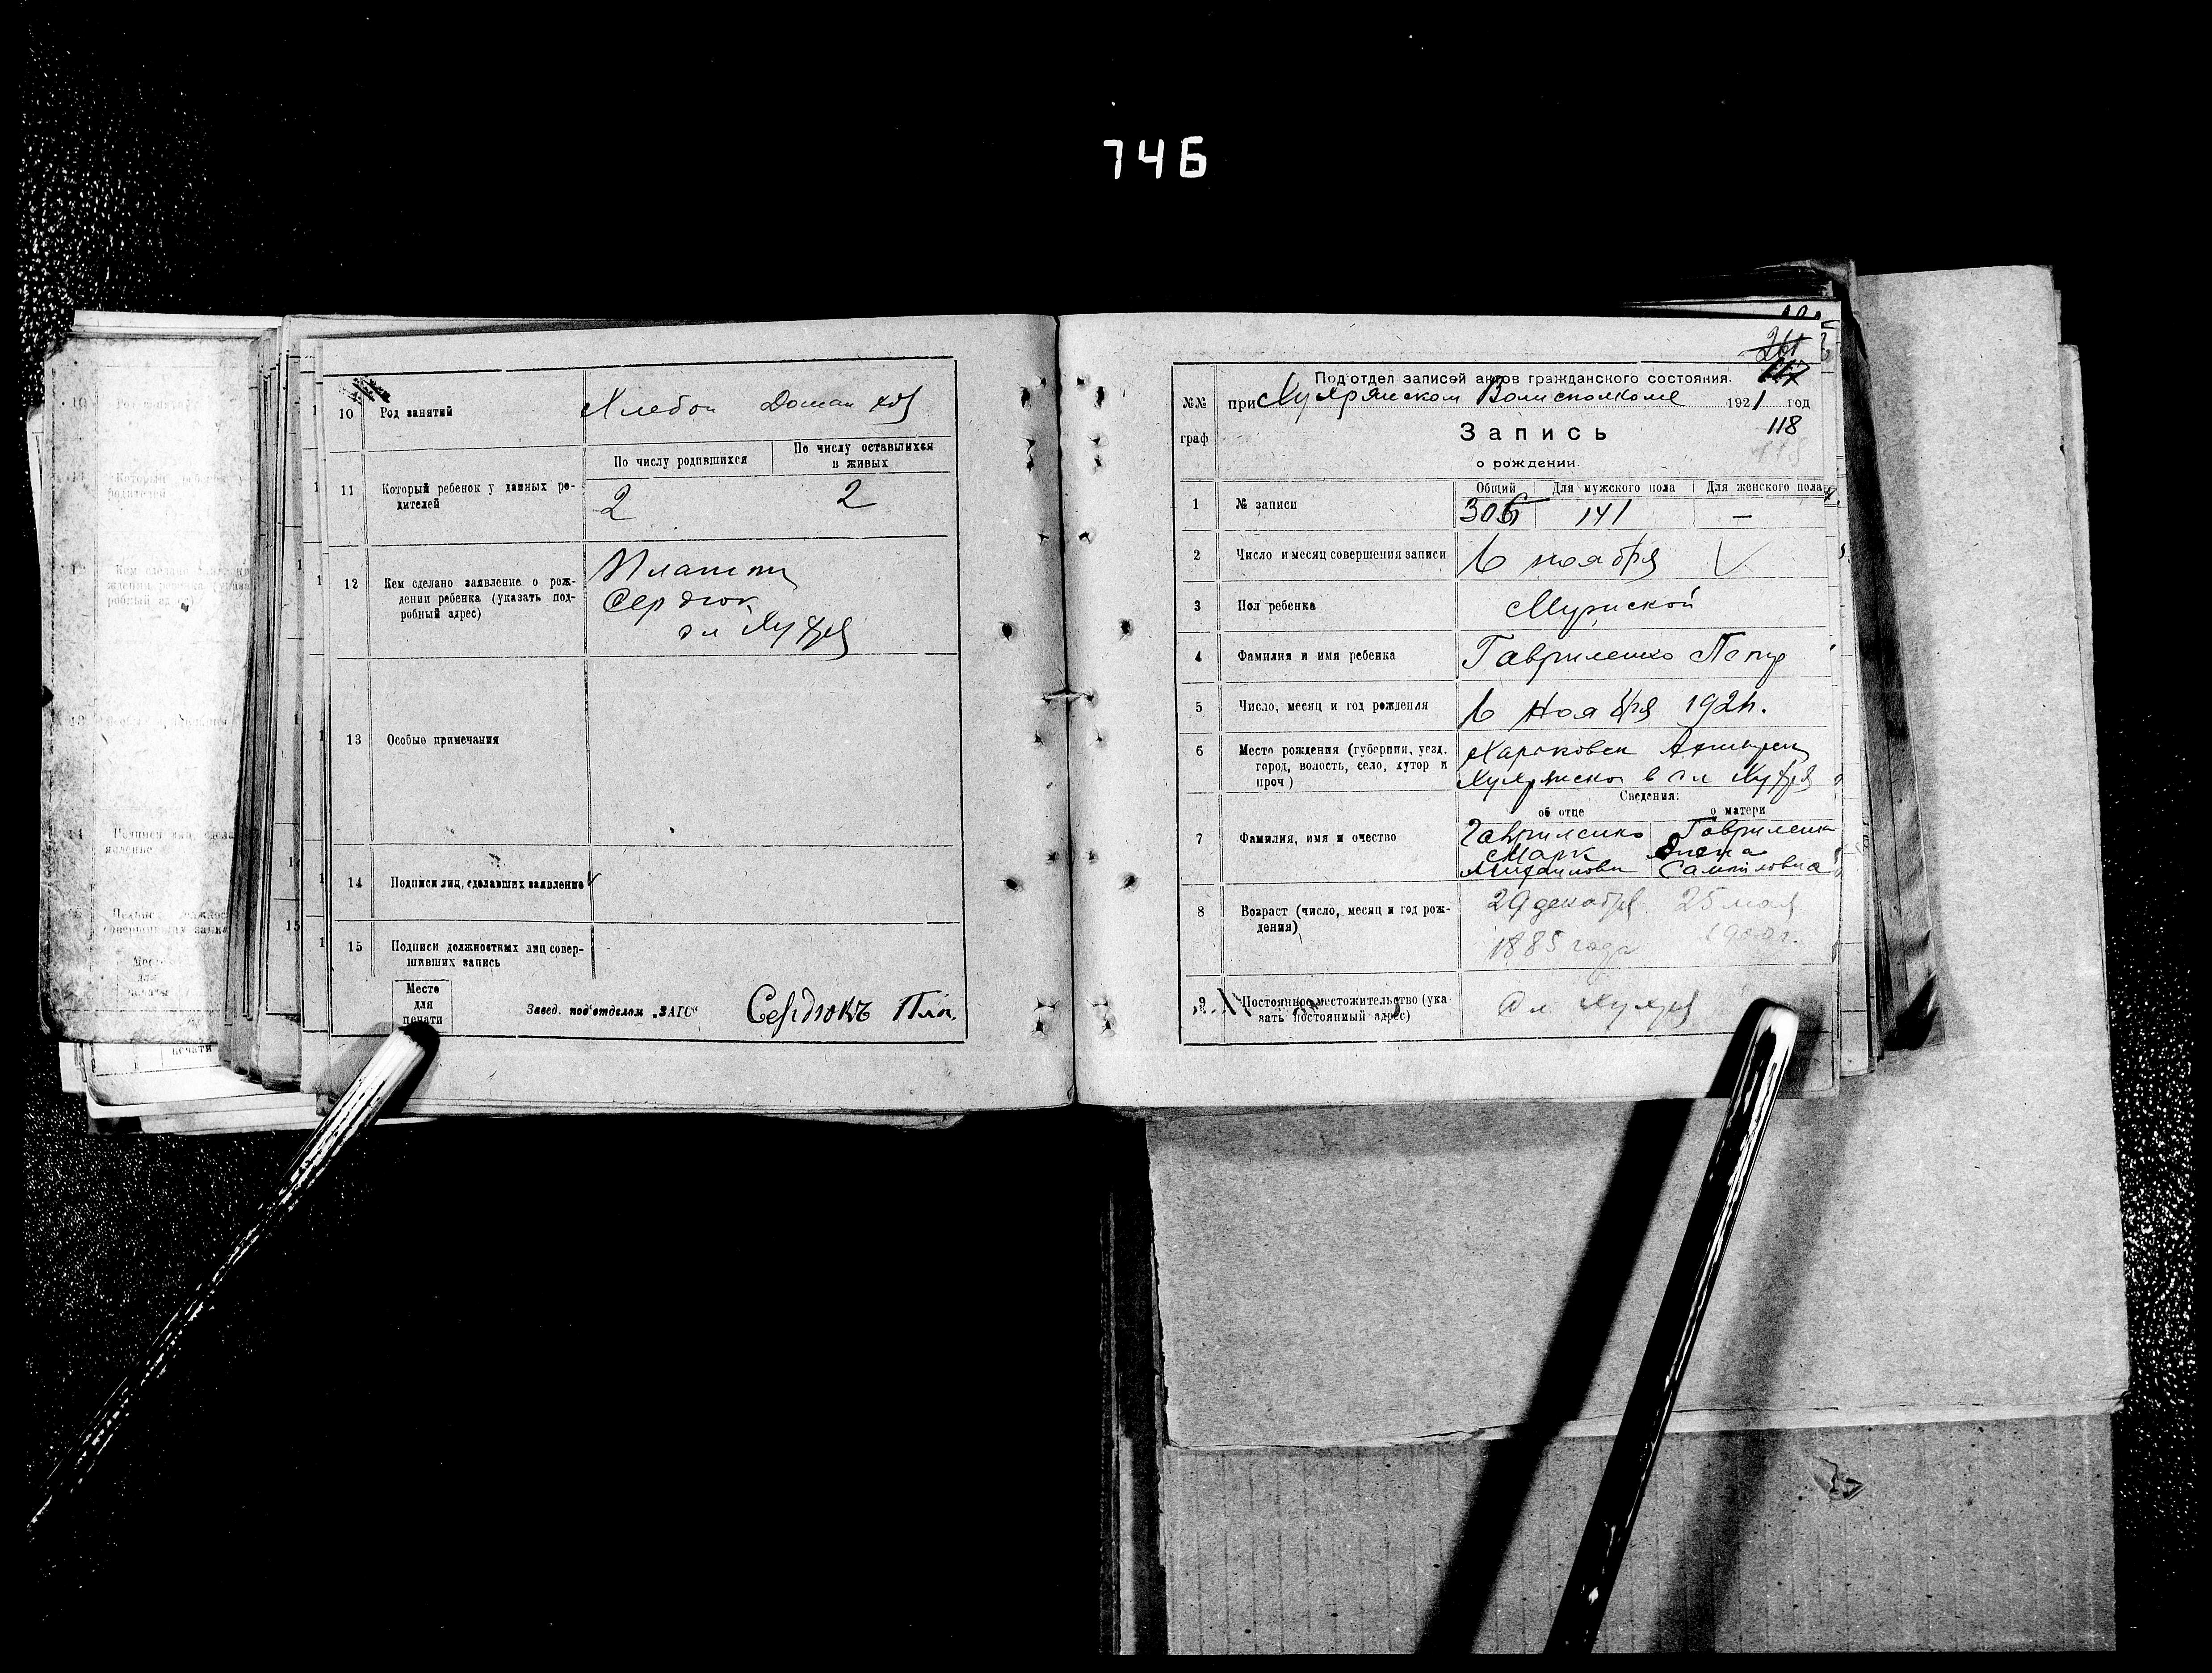 746
10 Род занятий Хлебоп Домаш хоз
11 Который ребенок у данных ро-
дителей
По числу родившихся
По числу оставшихся
в живых
2 2
12 Кем сделано заявление о рож-
дении ребенка (указать под-
робный адрес)
Сердюк
сл Хухря
13 Особые примечания
14 Подписи лиц, сделавших заявление
15 Подписи должностных лиц совер-
шивших запись
Место
для
печати
Завед. под'отделом „ЗАГС" Сердюкъ Пла.
261
117
№№
граф
Под'отдел записей актов гражданского состояния.
при Хухрянском Волисполкоме 1921 год
118
Запись
о рождении.
Общий Для мужского пола Для женского пола
1 № записи 306 141 —
2 Число и месяц совершения записи 6 ноября
3 Пол ребенка Мужской
4 Фамилия и имя ребенка Гавриленко Петр
5 Число, месяц и год рождения 6 Ноября 1921г.
6 Место рождения (губерния, уезд,
город, волость, село, хутор и
проч)
Харьковск Ахтырск
Хухрянской в сл Хухря
Сведения:
об отце о матери
7 Фамилия, имя и очество
Гавриленко Гавриленко
Марк Елена
Михайлович Самойловна
8 Возраст (число, месяц и год рож-
дения)
29 декабря 25 мая
1885 года 1900г.
9 Постоянное местожительство (ука
зать постоянный адрес)
Сл Хухря